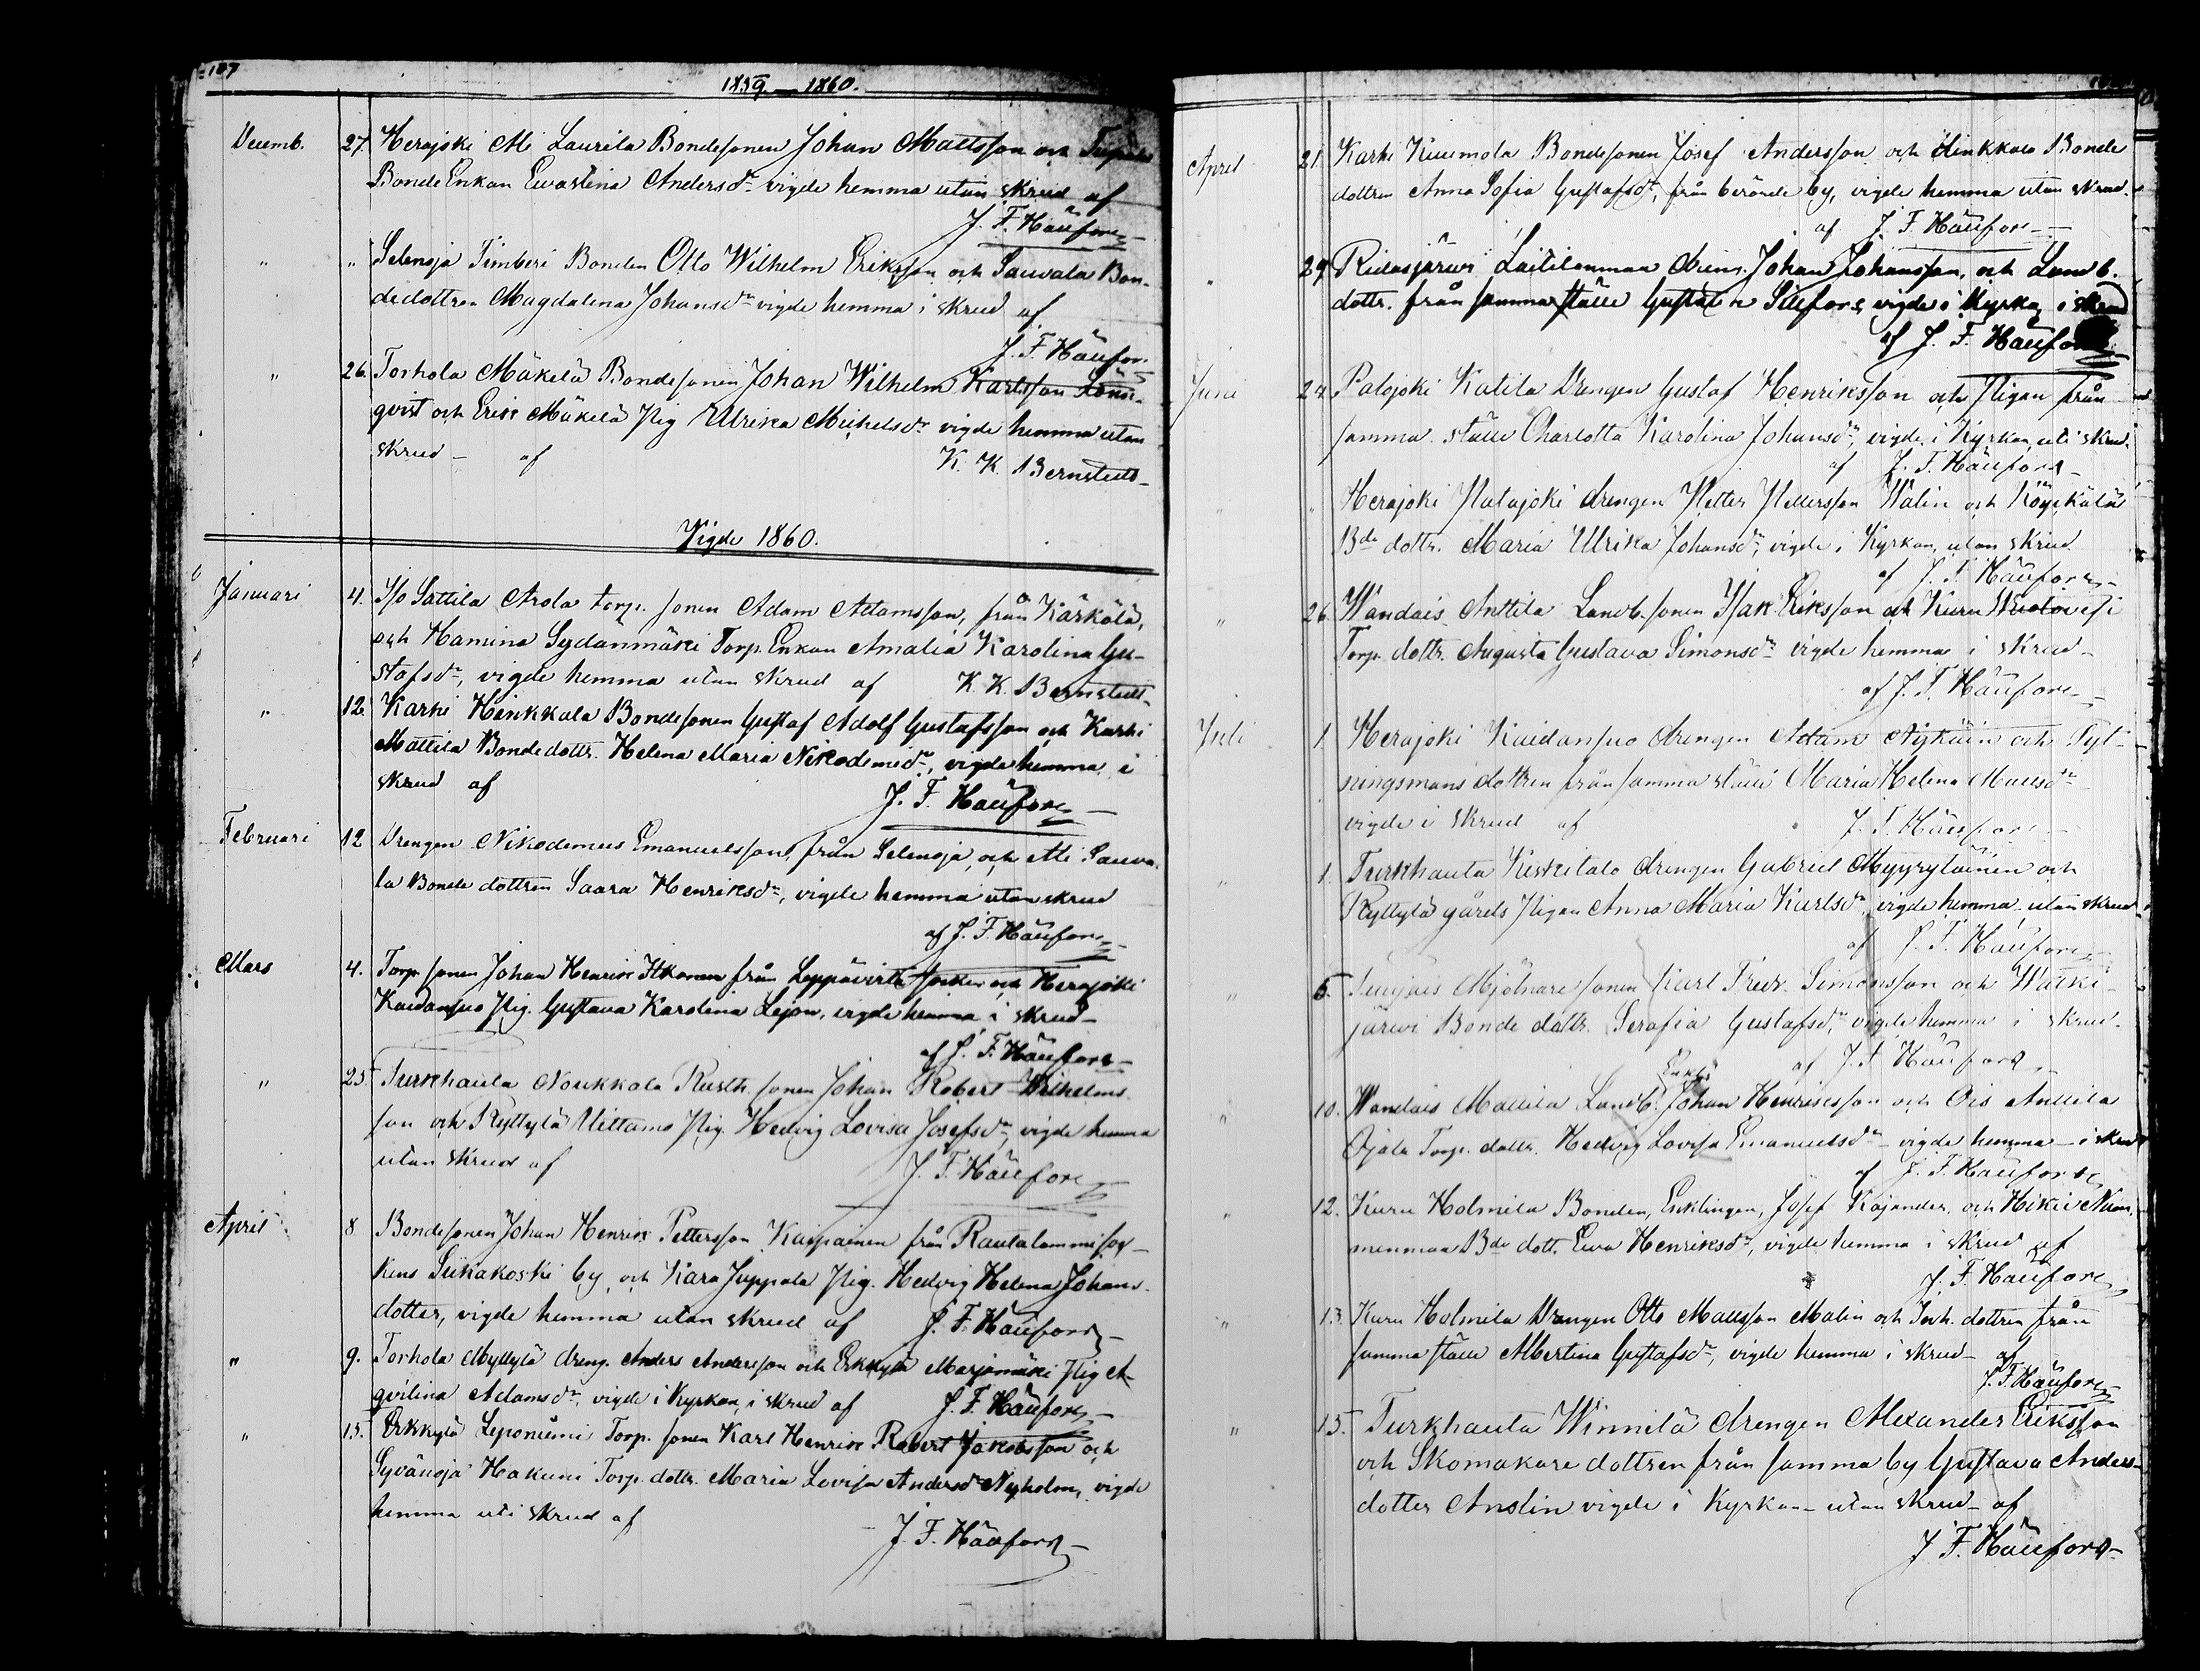 107
1859 — 1860.
Decemb. 27. Herajoki Ali Laurila Bondesonen Johan Mattsson och
Bonde Enkan Ewastina Andersd:r vigde hemma utan skrud af
J. F. Häufors
" " Selenoja Timberi Bonden Otto Wilhelm Eriksson och Sauvala Bon-
dedottren Magdalena Johansd:r vigde hemma i skrud af
J. F. Häufors
" 26. Torhola Mäkelä Bondesonen Johan Wilhelm Karlsson
qvist och Erik Mäkelä Pig Ulrika Michelsd:r vigde hemma utan
skrud – af K. K. Bernstedt
Vigde 1860.
Januari 4. Iso Sattila Arola torp. sonen Adam Adamsson, från Kärkölä,
och Hamina Sydanmäki Torp. Enkan Amalia Karolina Gu-
stafsd:r, vigde hemma utan skrud af K. K. Bernstedt
" 12. Karhi Heinkkala Bondesonen Gustaf Adolf Gustafsson och Karhi
Mattila Bondedottr. Helena Maria Nikodemid:r, vigde hemma i
skrud af J. F. Häufors
Februari 12 Drengen Nikodemus Emanuelsson, från Selenoja, och Ali Sauva-
la Bonde dottren Saara Henriksd:r, vigde hemma utan skrud
af J. F. Häufors
Mars 4. Torp. sonen Johan Henrik Itkonen från Leppävirta socken och Herajoki
Kaidansuo Pig. Gustava Karolina Lejon, vigde hemma i skrud –
af J. F. Häufors
" 25. Turkhauta Noukkala Rusth. sonen Johan Robert Wilhelms-
son och Ryttylä Uittamo Pig. Hedvig Lovisa Josefsd:r, vigde hemma
utan skrud af J. F. Häufors
April 8 Bondesonen Johan Henrik Pettersson Kaipainen från Rautalammi soc-
kens Siikakoski by, och Kara Juppala Pig. Hedvig Helena Johans-
dotter, vigde hemma utan skrud af J. F. Häufors
" 9. Torhola Myllylä dreng. Anders Andersson och Erkkylä Marjomäki Pig A-
qvilina Adamsd:r, vigde i Kyrkan, i skrud af J. F. Häufors
" 15. Erkkylä Leponiemi Torp. sonen Karl Henrik Robert Jakobsson och
Syvänoja Hakuni Torp. dottr. Maria Lovisa Andersd:r Nyholm, vigde
hemma uti skrud af
J. F. Häufors
April 21. Karhi Kuumola Bondesonen Josef Andersson och Heinkkala Bonde
dottren Anna Sofia Gustafsd:r, från berörde by, vigde hemma utan skrud.
af J. F. Häufors
" 29. Ridasjärwi Laitilanmaa dreng. Johan Johansson, och Landb.
dottr. från samma ställe Gustava Silfors, vigde i Kyrkan, i skrud
af J. F. Häufors
Juni 24. Palojoki Katila Drengen Gustaf Henriksson och Pigan från
samma ställe Charlotta Karolina Johansd:r, vigde i Kyrkan, uti skrud.
af J. F. Häufors
" " Herajoki Patajoki drengen Petter Pettersson Walin och
B:de dottr. Maria Ulrika Johansd:r, vigde i Kyrkan, utan skrud
af J. F. Häufors
" 26. Wandais Anttila Landb. sonen Isak Eriksson och Kuru
Torp. dottr. Augusta Gustava Simonsd:r vigde hemma i skrud –
af J. F. Häufors
Juli 1 Herajoki Kaidansuo drengen Adam och
ningsmans dottren från samma ställe Maria Helena Mattsd:r
vigde i skrud af J. F. Häufors
" 1. Turkhauta Keskitalo drengen Gabriel Myyryläinen och
Ryttylä gårds Pigan Anna Maria Karlsd:r, vigde hemma utan skrud
af J. F. Häufors
" 6. Mjölnare sonen Karl Fredr. Simonsson och Watki-
järwi Bonde dottr. Serafia Gustafsd:r, vigde hemma i skrud.
af J. F. Häufors
Enkl:
" 10. Wandais Mattila Landb. Johan Henriksson och Ois Anttila
Ojala Torp. dottr. Hedvig Lovisa Emanuelsd:r vigde hemma – i skrud
af J. F. Häufors
" 12. Kuru Holmila Bonden, Enklingen, Josef Kajander, och Hikiä Num-
menmaa B:de dott. Ewa Henriksd:r, vigde hemma i skrud af
J. F. Häufors
" 13. Kuru Holmila Drengen Otto Mattsson Malin och Inh. dottren från
samma ställe Albertina Gustafsd:r, vigde hemma i skrud – af
J. F. Häufors
" 15. Turkhauta Winnilä drengen Alexander Eriksson
och Skomakare dottren från samma by Gustava Anders-
dotter Anslin vigde i Kyrkan – utan skrud – af
J. F. Häufors